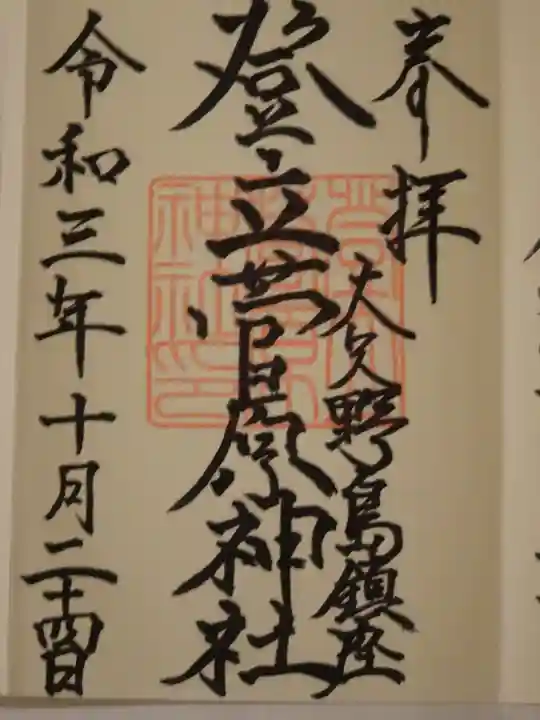 奉拝
大矢野島鎮座
登立菅原神社
令和三年十月二十四日